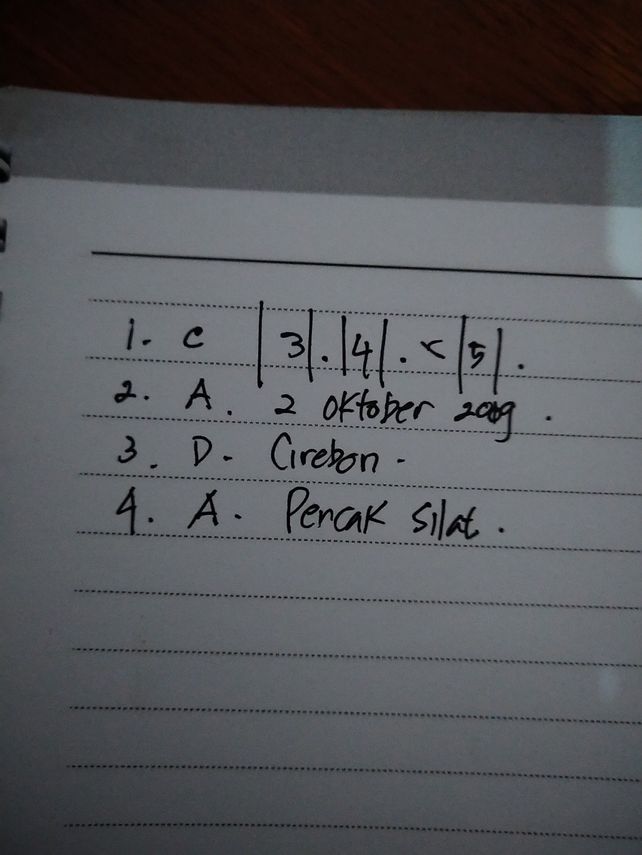 1. C |3|.|4|. < |5|.
2. A. 2 Oktober 2009.
3. D. Cirebon.
4. A. Pencak Silat.